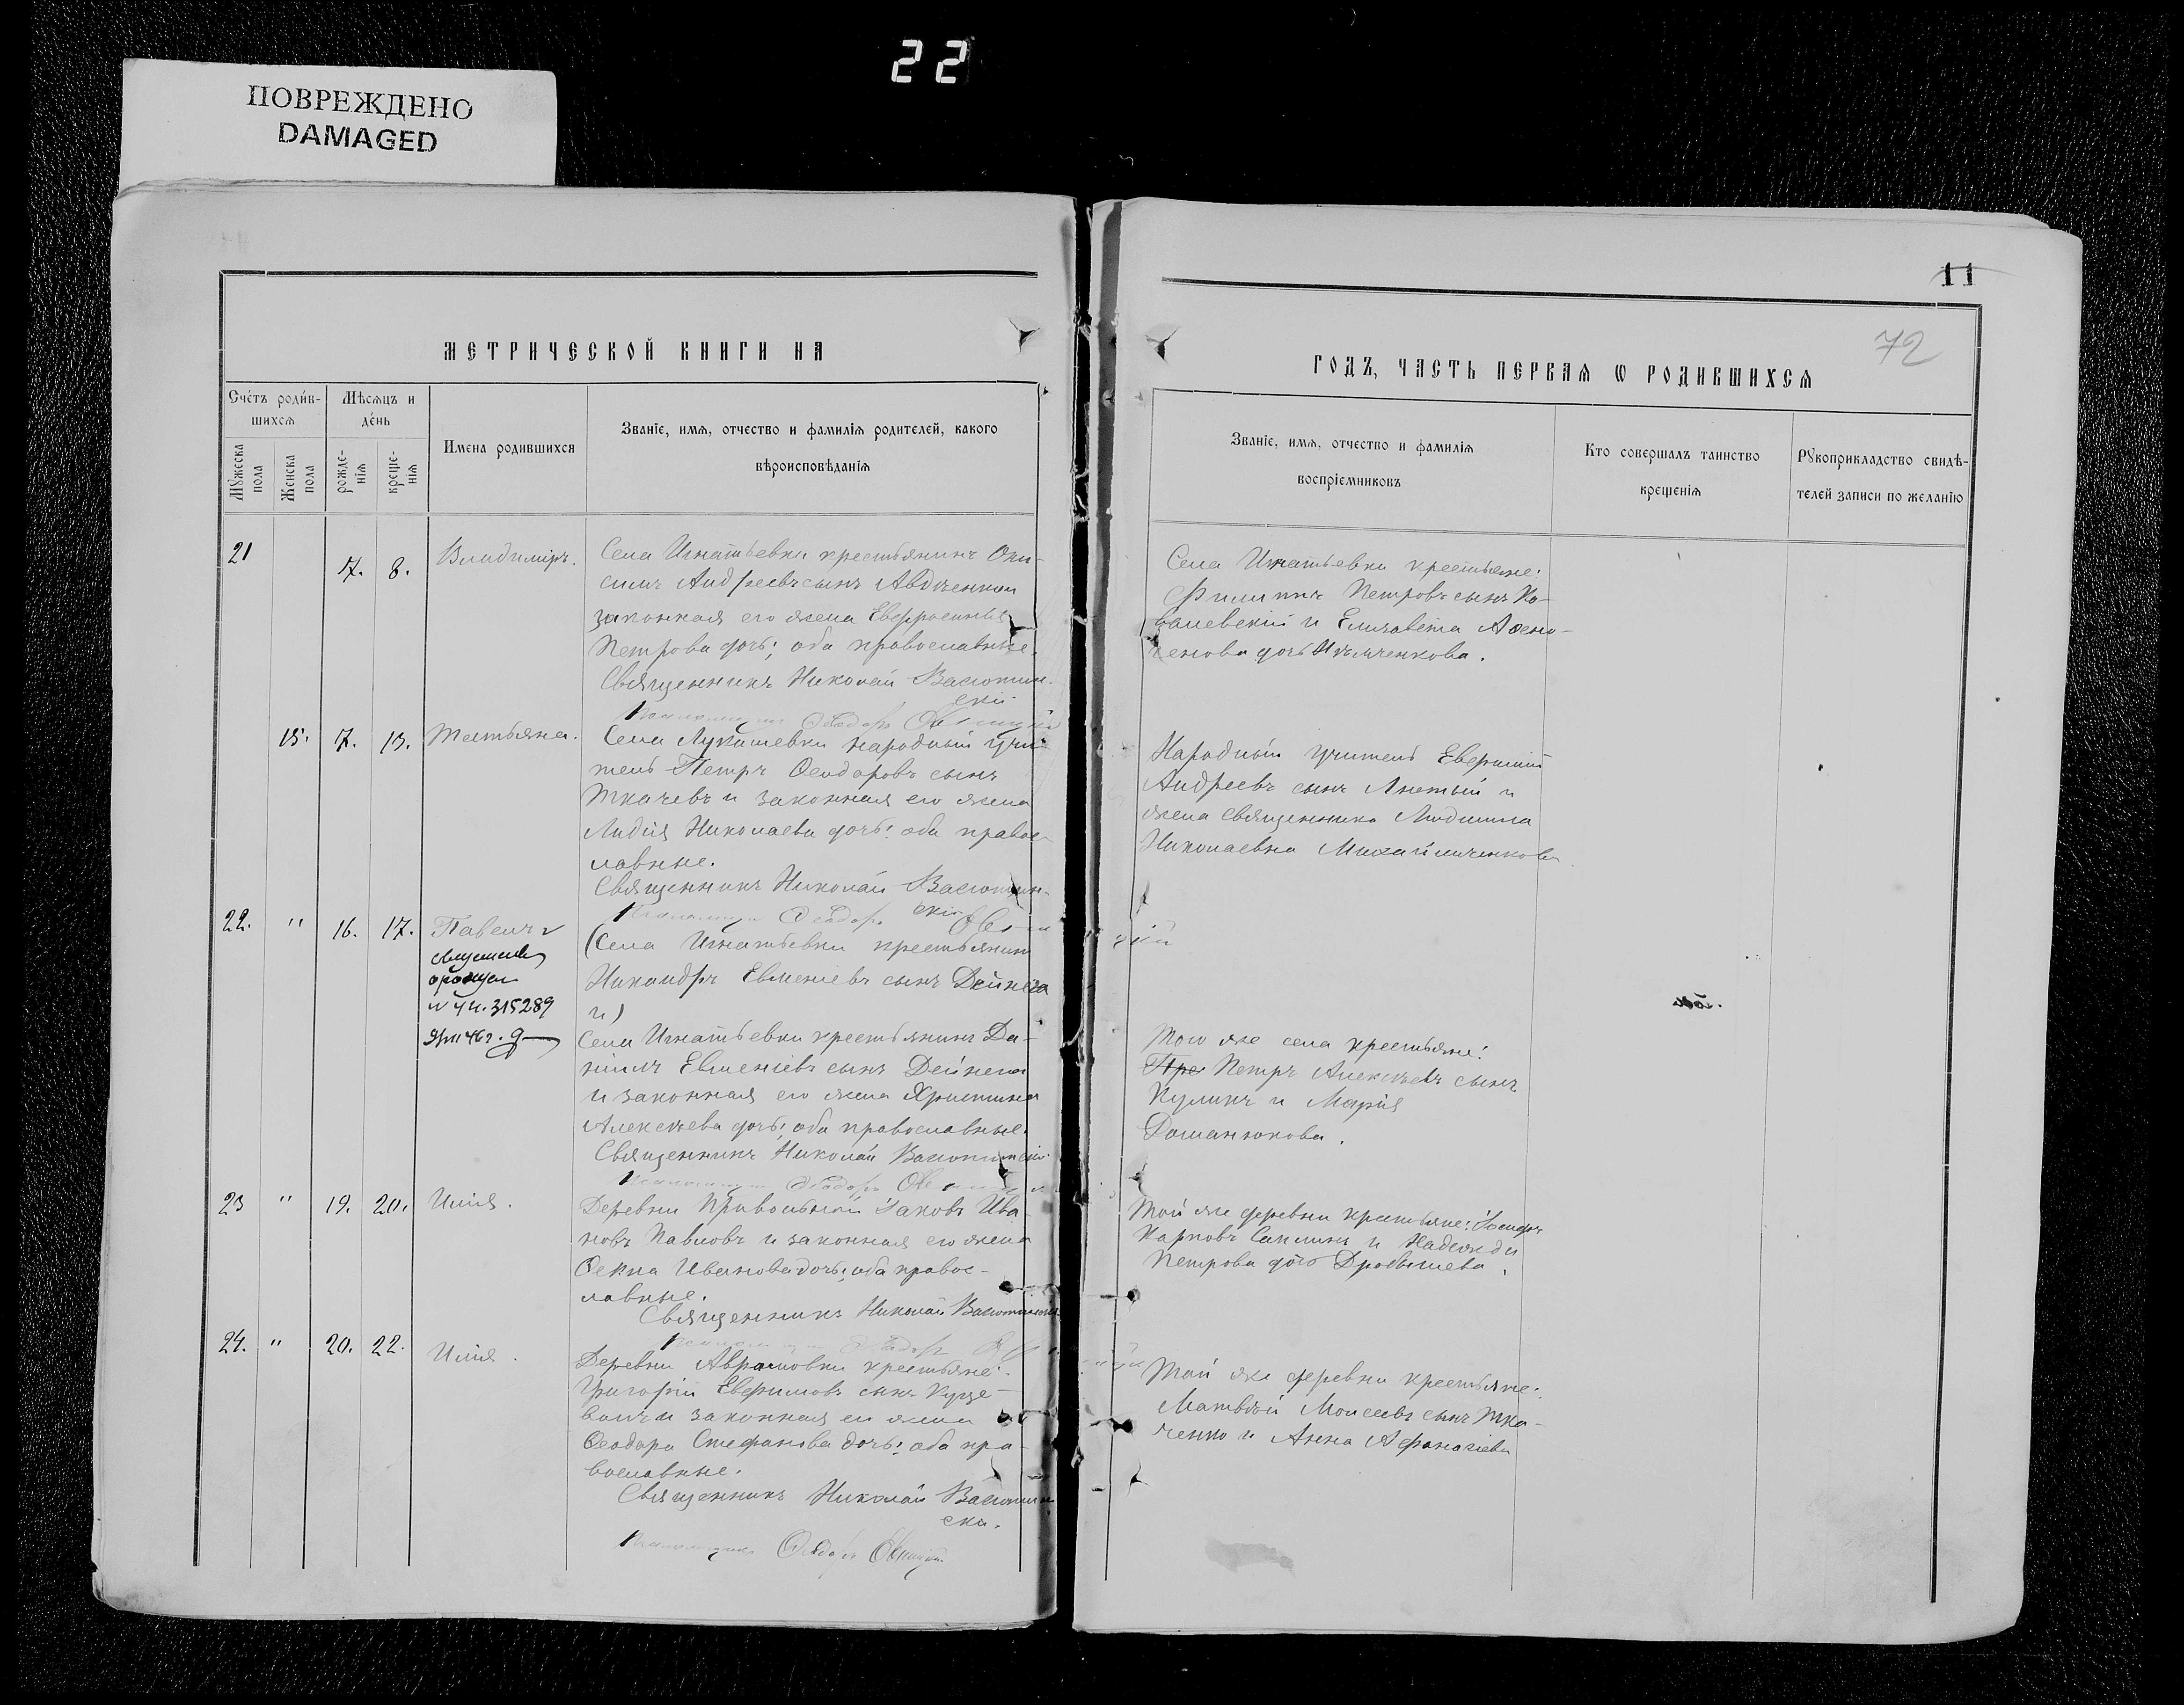 22
ПОВРЕЖДЕНО
DAMAGED
11
72
МЕТРИЧЕСКОЙ КНИГИ НА
ГОДЪ, ЧАСТЬ ПЕРВАЯ Ѡ РОДИВШИХСЯ
Счéтъ роди́в-
шихся
Мѣсяцъ и
дéнь
Мꙋжеска
пола
Женска
пола
рожде-
нія
креще-
нія
Имена родившихся
Званіе, имя, отчество и фамилія родителей, какого
вѣроисповѣданія
Званіе, имя, отчество и фамилія
воспріємниковъ
Кто совершалъ таинство
крещенія
Рꙋкоприкладство свидѣ-
телей записи по желанію
21
7. 8.
Владиміръ.
Села Игнатьевки крестьянинъ Они-
симъ Андреевъ сынъ Авдѣенко и
законная его жена Евфросинія
Петрова дочь; оба православные.
Священникъ Николай Васютин-
скій
Села Игнатьевки крестьяне:
Филиппъ Петровъ сынъ Ко-
валевскій и Елизавета
дочь
15. 7. 13.
Татьяна.
Села Лукашевки народный учи-
тель Петръ Ѳеодоровъ сынъ
Ткачевъ и законная его жена
Лидія Николаева дочь; оба правос-
лавные.
Священникъ Николай Васютин-
скій
Народный учитель Евфимій
Андреевъ сынъ и
жена священника Людмила
Николаевна Михайличенкова
22. " 16. 17.
Павелъ
№ 315289
(Села Игнатьевки крестьянинъ
Никандръ Евменіевъ сынъ Дейнега
и)
Села Игнатьевки крестьянинъ Да-
ніилъ Евменіевъ сынъ Дейнега
и законная его жена Христина
Алексѣева дочь; оба православные.
Священникъ Николай Васютинскій
Того же села крестьяне:
Петръ Алексѣевъ сынъ
Куликъ и Марія
Доманюкова.
23 " 19. 20.
Илія.
Деревни Привольной Іаковъ Ива-
новъ Павловъ и законная его жена
Ѳекла Иванова дочь; оба правос-
лавные.
Священникъ Николай Васютинскій
Той же деревни крестьяне: Іосифъ
Карповъ и Надежда
Петрова дочь
24. " 20. 22.
Илія.
Деревни Аврамовки крестьяне:
Григорій Евфимовъ сынъ Куце-
волъ и законная его жена
Ѳеодора Стефанова дочь; оба пра-
вославные.
Священникъ Николай Васютин
скій.
Ѳеодоръ
Той же деревни крестьяне:
Матвѣй Моисеевъ сынъ Тка-
ченко и Анна Афанасіева